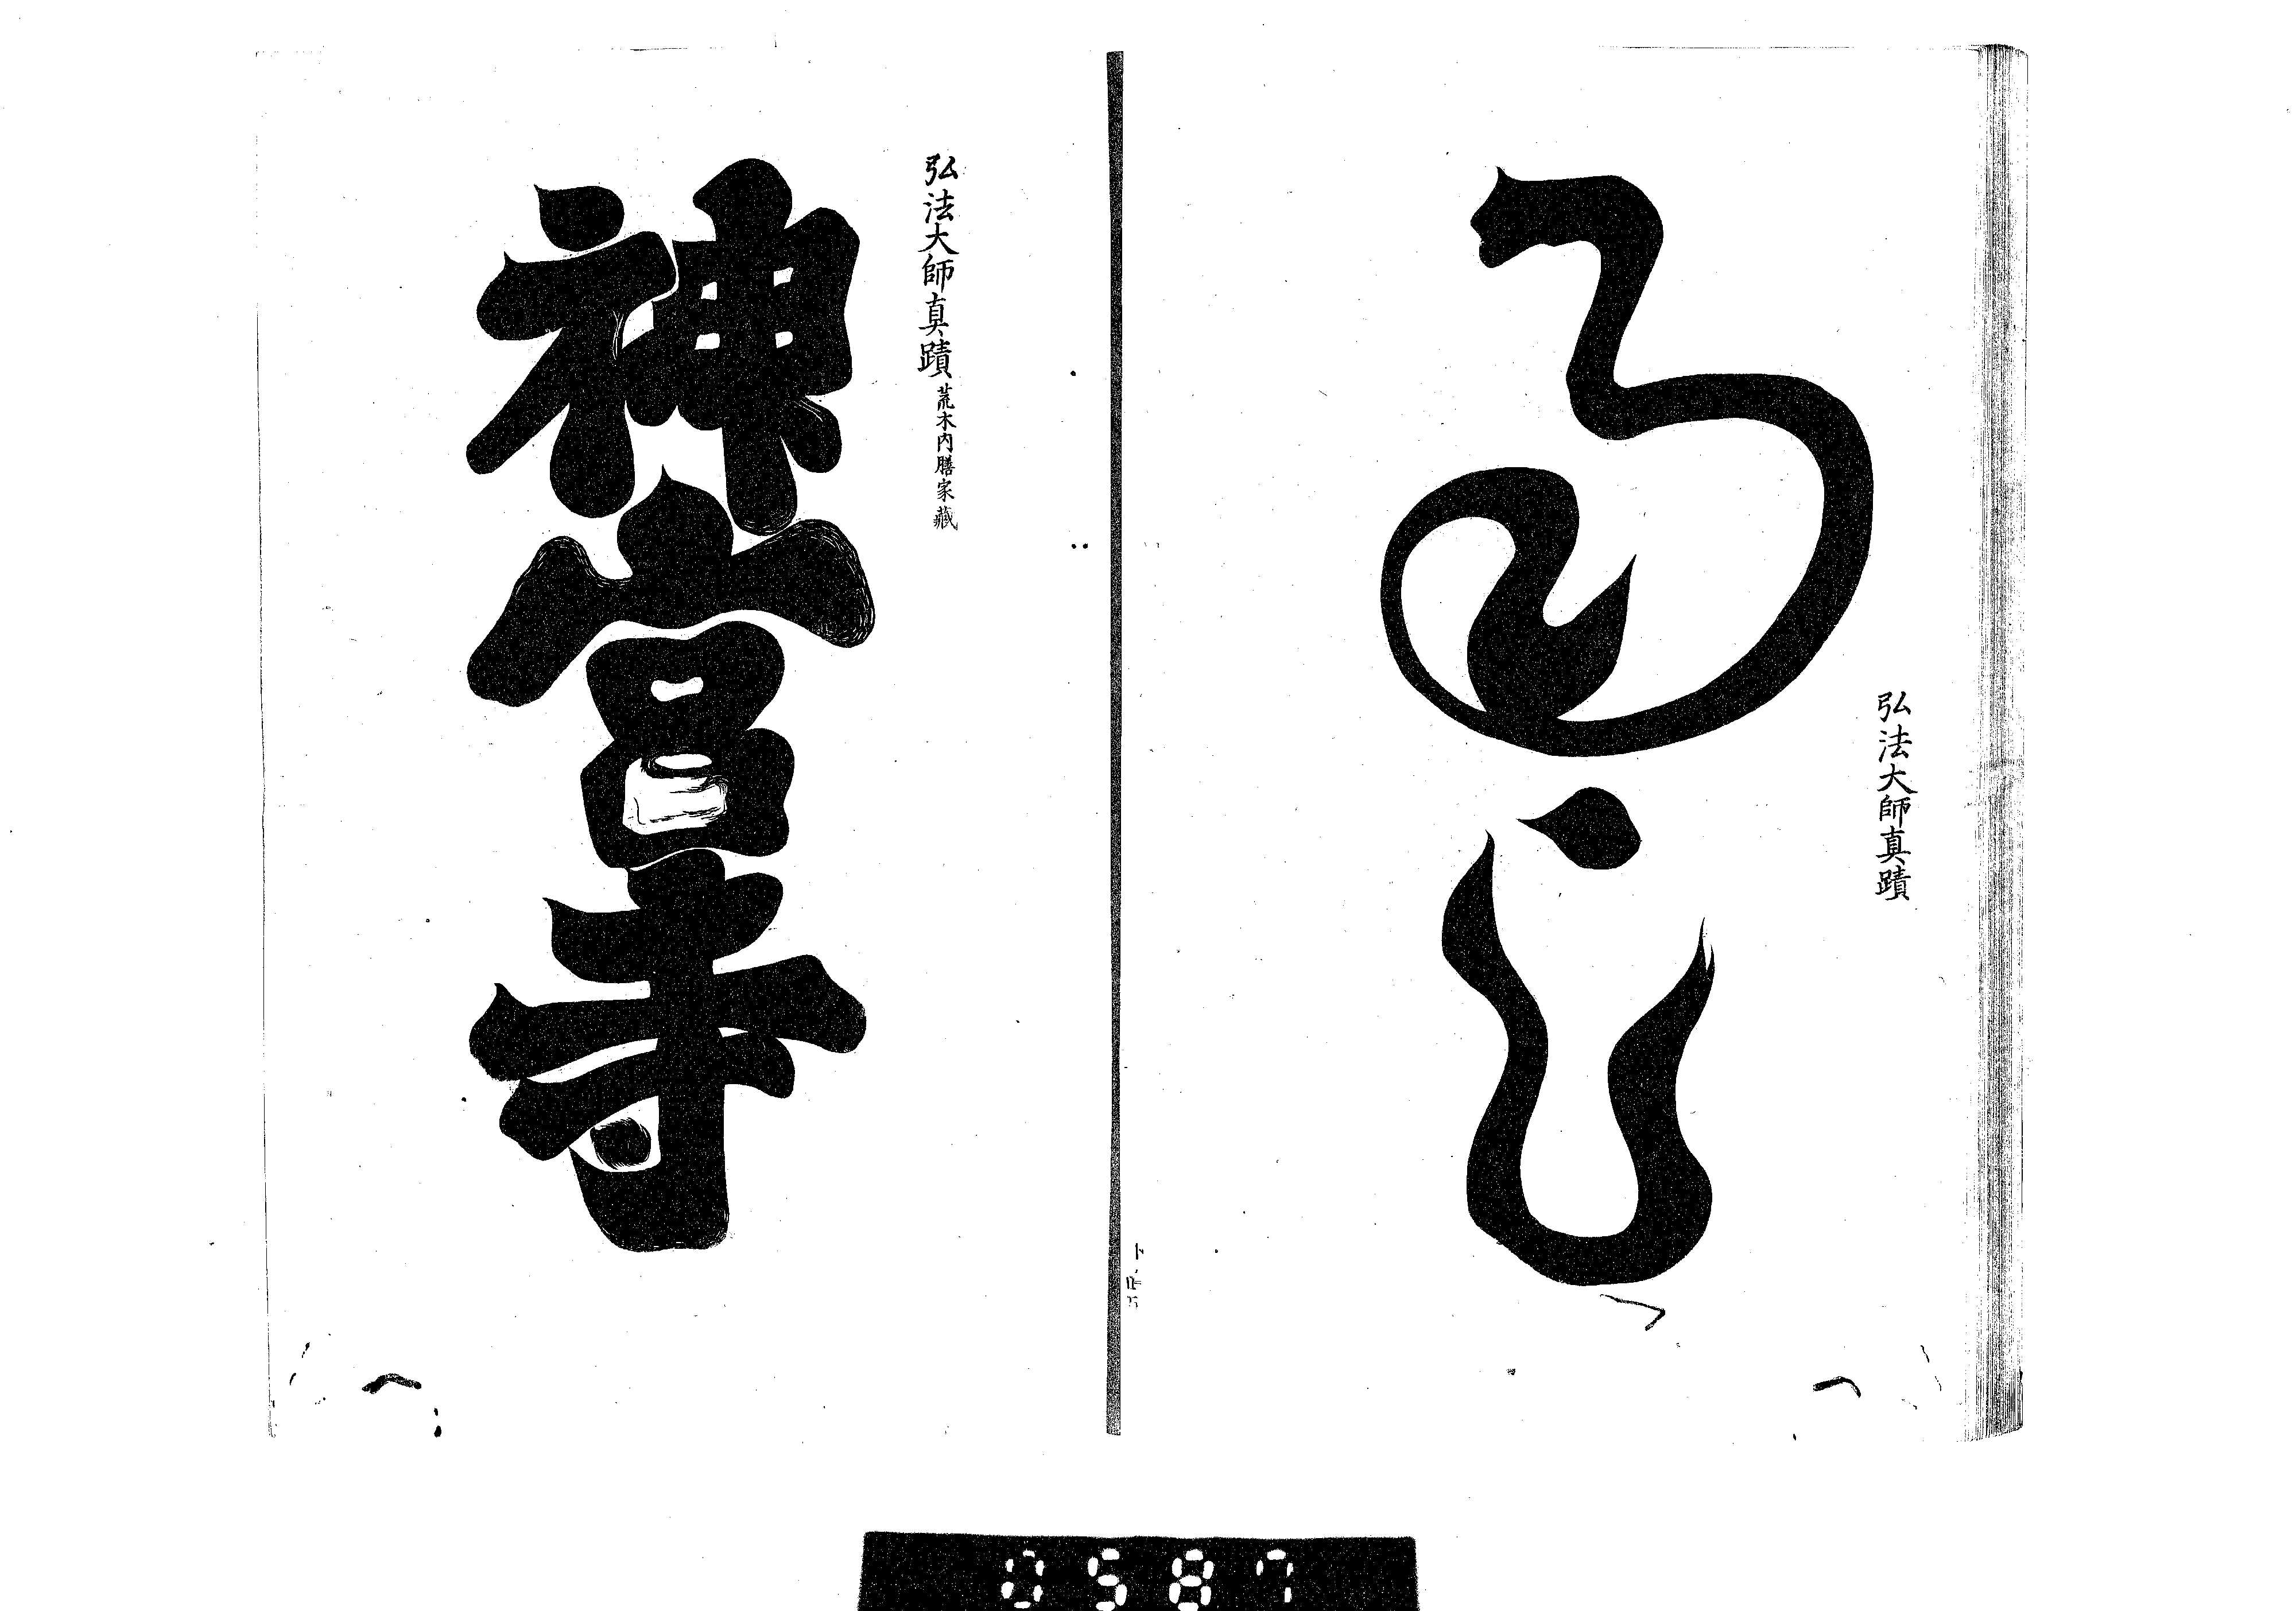 弘法大師真蹟
弘法大師真蹟 荒木内膳家藏
神宮寺
0587